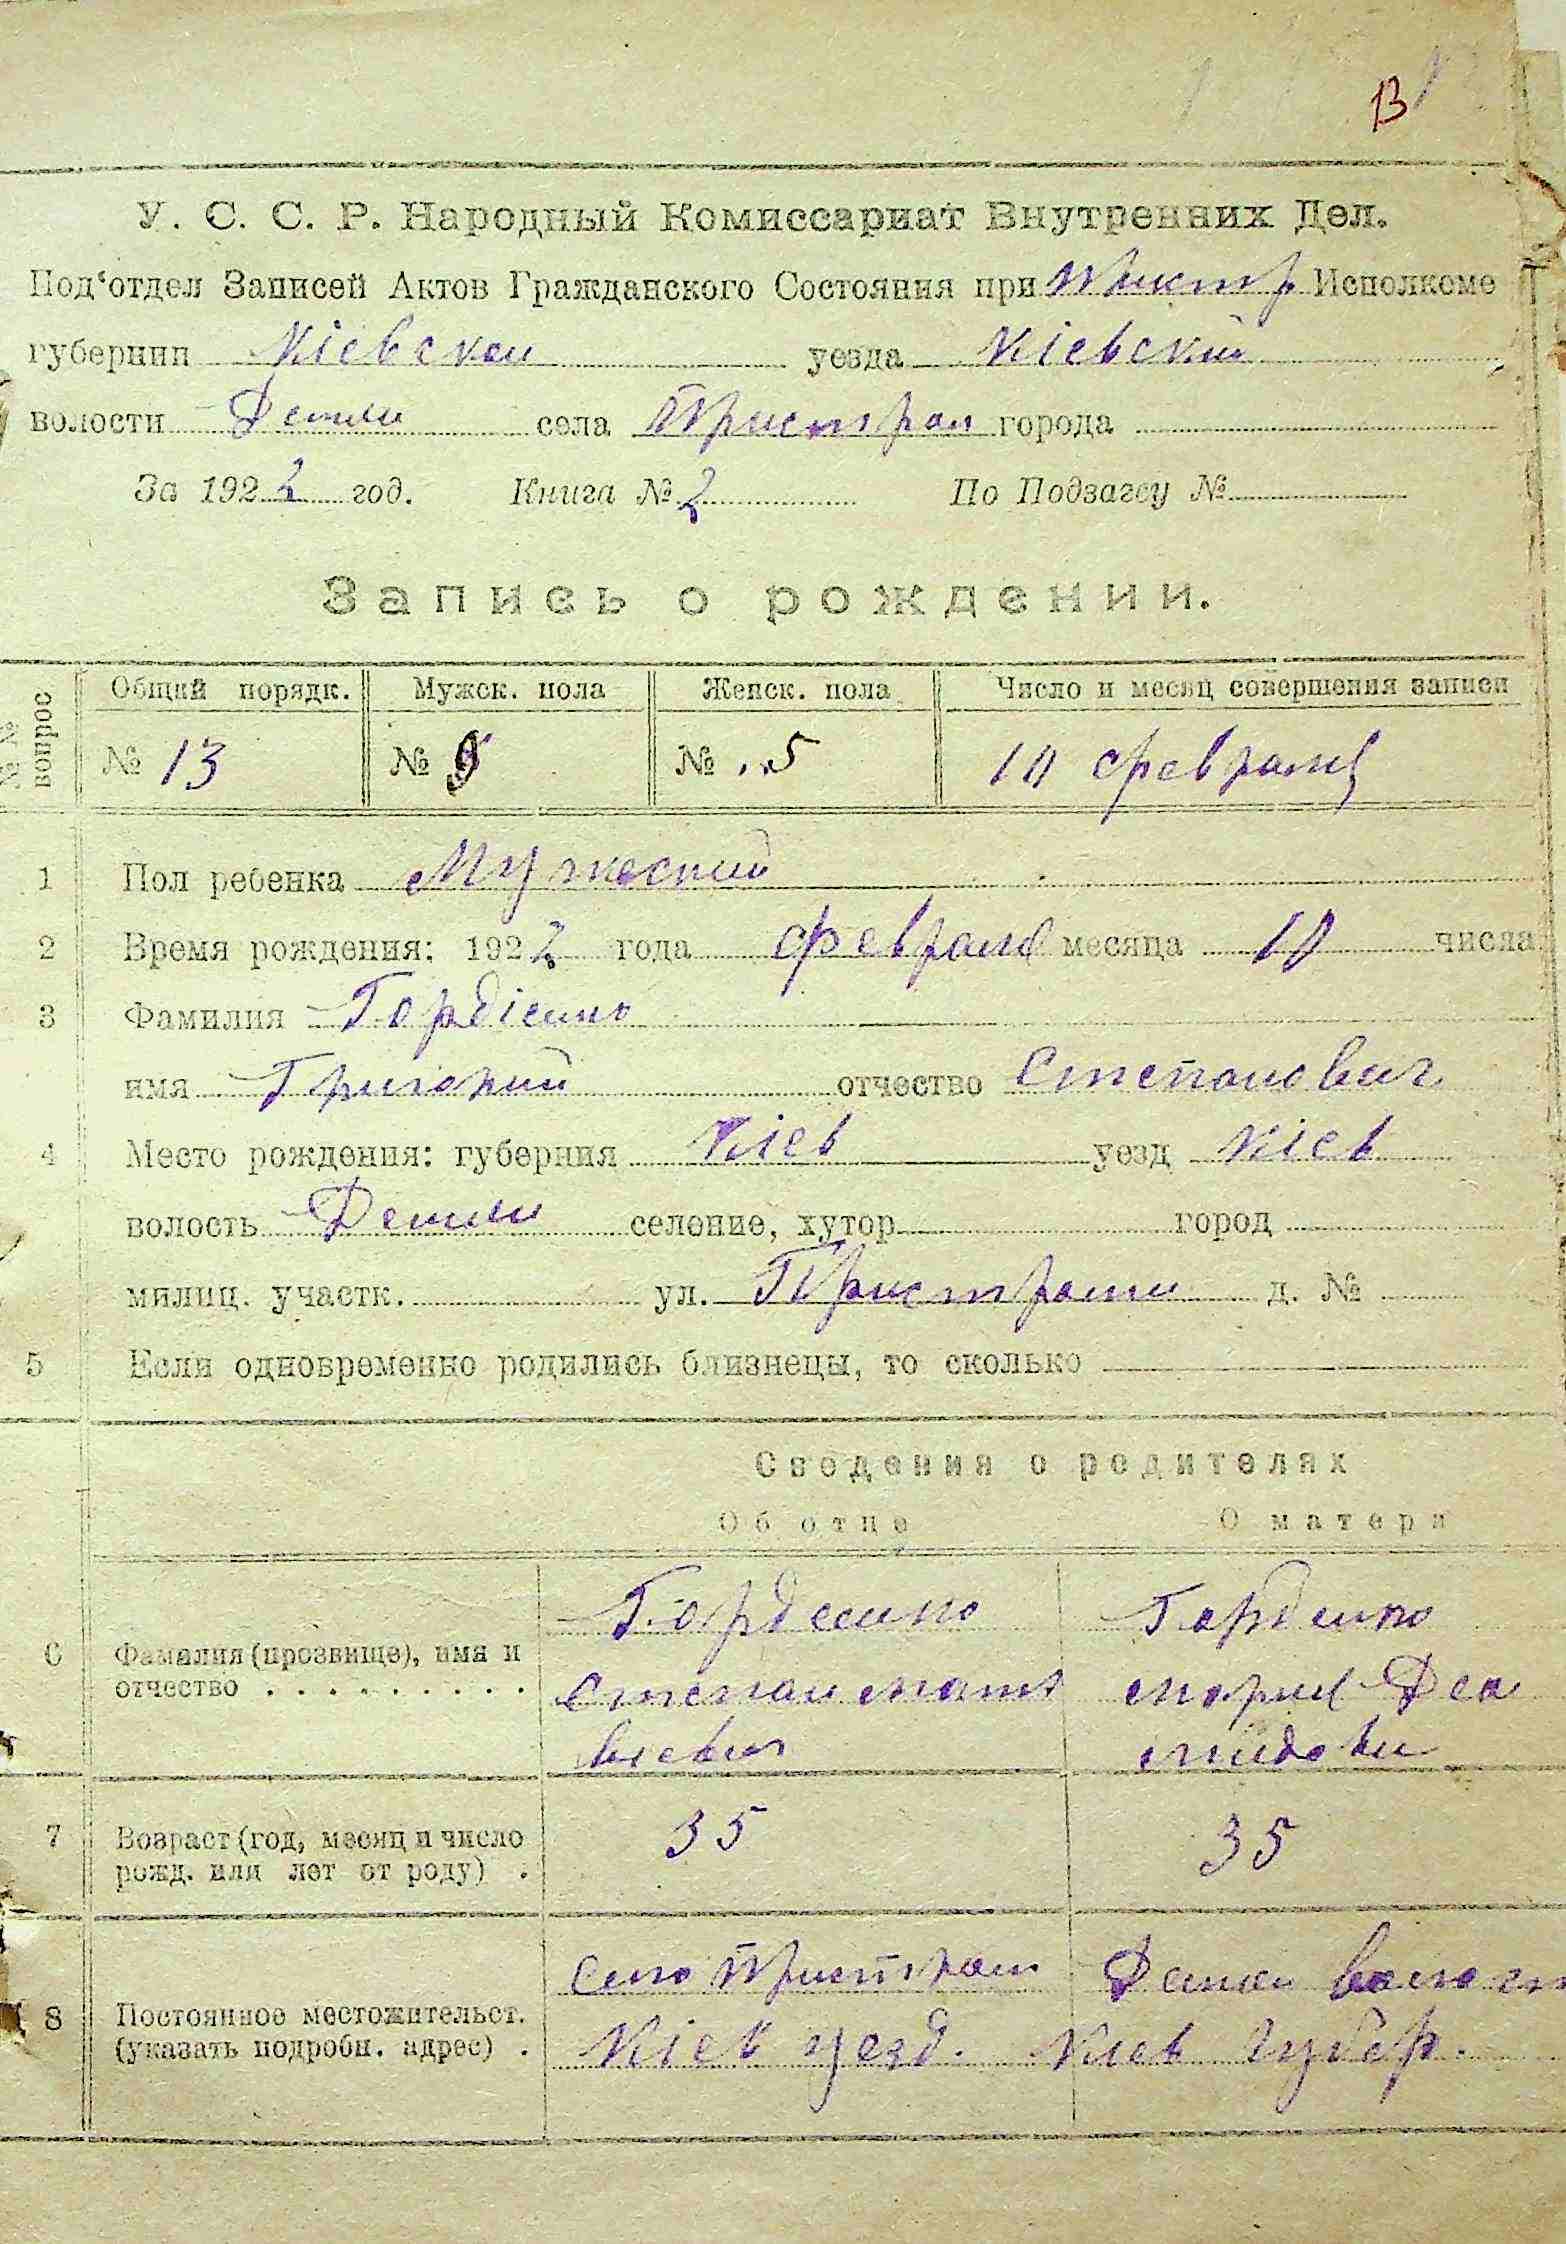 13
У. С. С. Р. Народный Комиссариат Внутренних Дел.
Под'отдел Записей Актов Гражданского Состояния при Исполкоме
губернии Кіевской уезда Кіевский
волости Демии села города
За 1922 год. Книга № 2 По Подзагсу №
Запись о рождении.
№№ вопрос Общий порядк. Мужск. пола Женск. пола Число и месяц совершения записи
№ 13 № 9 № 5 10 февраля
1 Пол ребенка Мужеский
2 Время рождения: 1922 года февраля месяца 10 числа
3 Фамилия Гордіенко
имя Григорий отчество Степанович
4 Место рождения: губерния Кіев уезд Кіев
волость Демии селение, хутор город
милиц. участк. ул. Пристроми д. №
5 Если одновременно родились близнецы, то сколько
Сведения о родителях
Об отце О матери
6 Фамилия (прозвище), имя и отчество . . . . . . . . . Гордеенко Гордеенко
Степан Мат Мария
виевич
7 Возраст (год, месяц и число рожд. или лет от роду) . 35 35
8 Постоянное местожительст. (указать подробн. адрес) . Село
Кіев уезд. Киев губер.